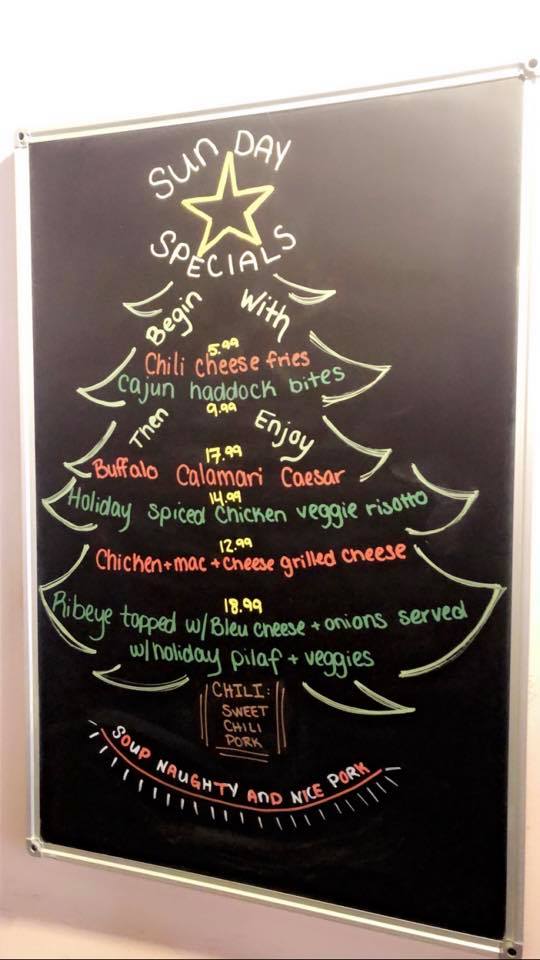 SUN DAY
SPECIALS
Begin With
5.99
Chili cheese fries
Cajun haddock bites
9.99
Then Enjoy
17.99
Buffalo Calamari Caesar
14.99
Holiday spiced chicken veggie risotto
12.99
Chicken + mac + cheese grilled cheese
18.99
Ribeye topped w/ Bleu cheese + onions served
w/ holiday pilaf + veggies
CHILI:
SWEET
CHILI
PORK
SOUP NAUGHTY AND NICE PORK